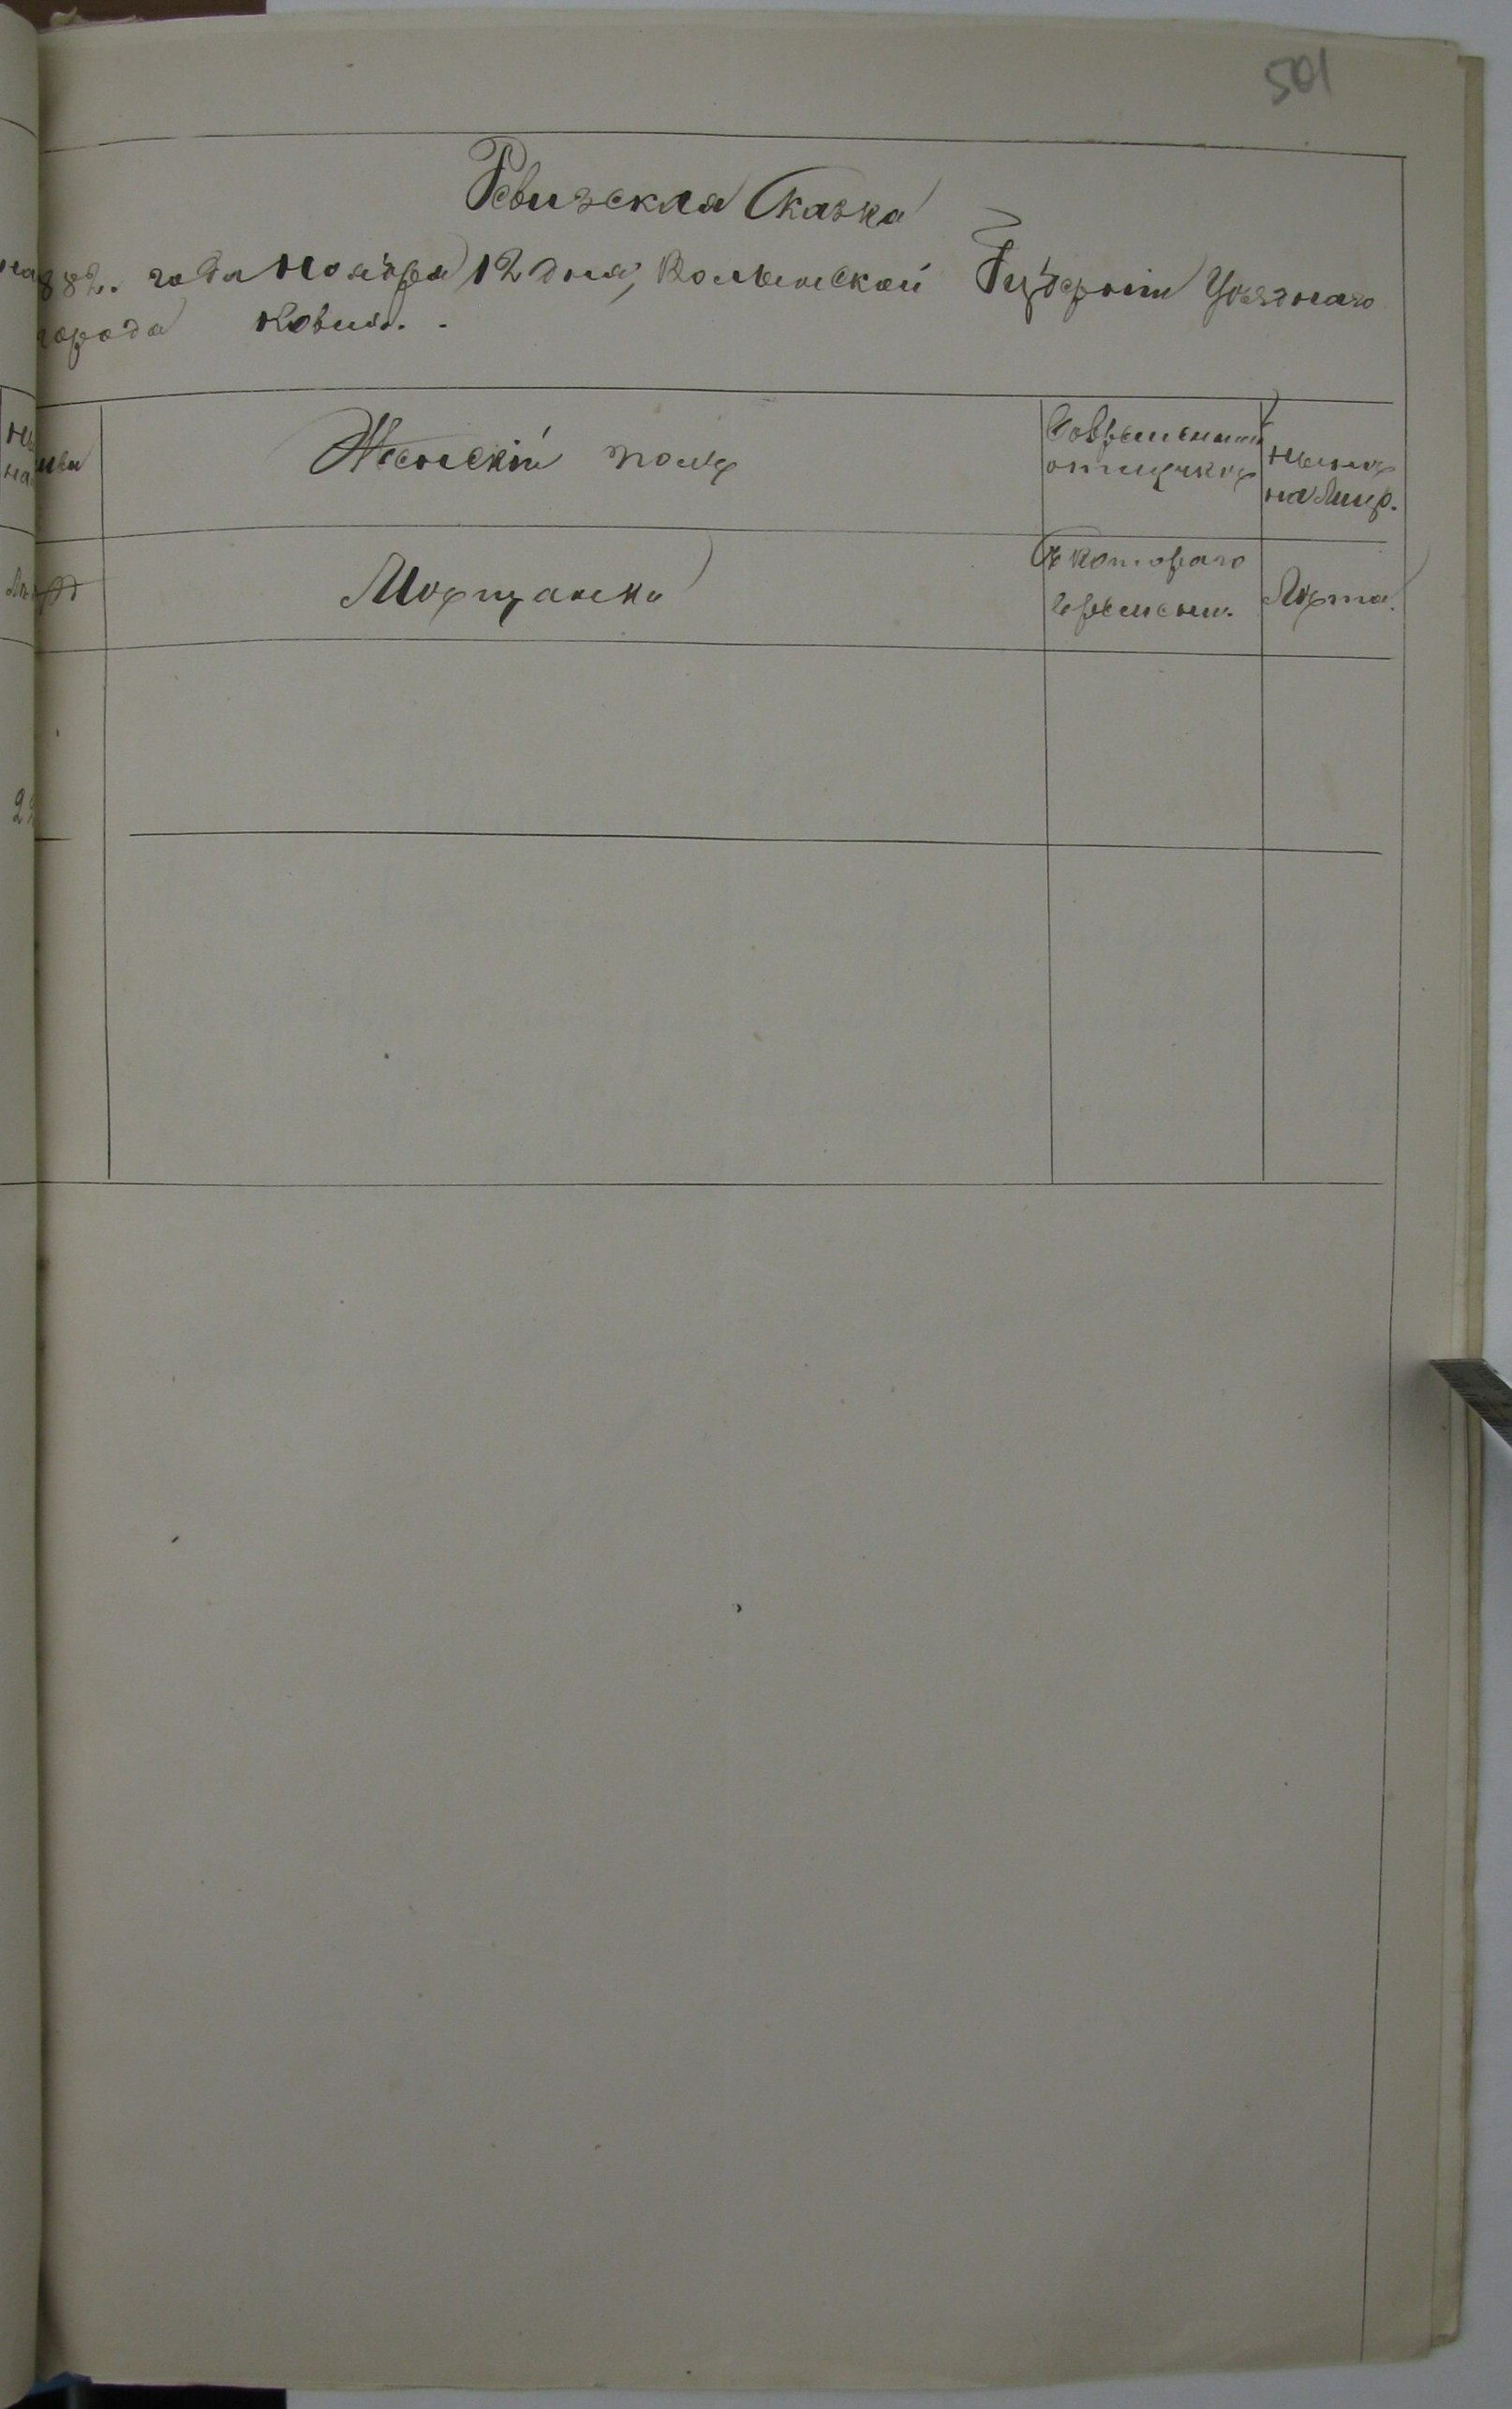 501
Ревизская Сказка
882. года Ноября 12 дня, Волынской Губерніи Уѣзднаго
города Ковля.
Женскій полъ
Во временной
отлучкѣ
нынѣ
на лицо.
Мѣщанки
Съ котораго
времени.
Лѣта.